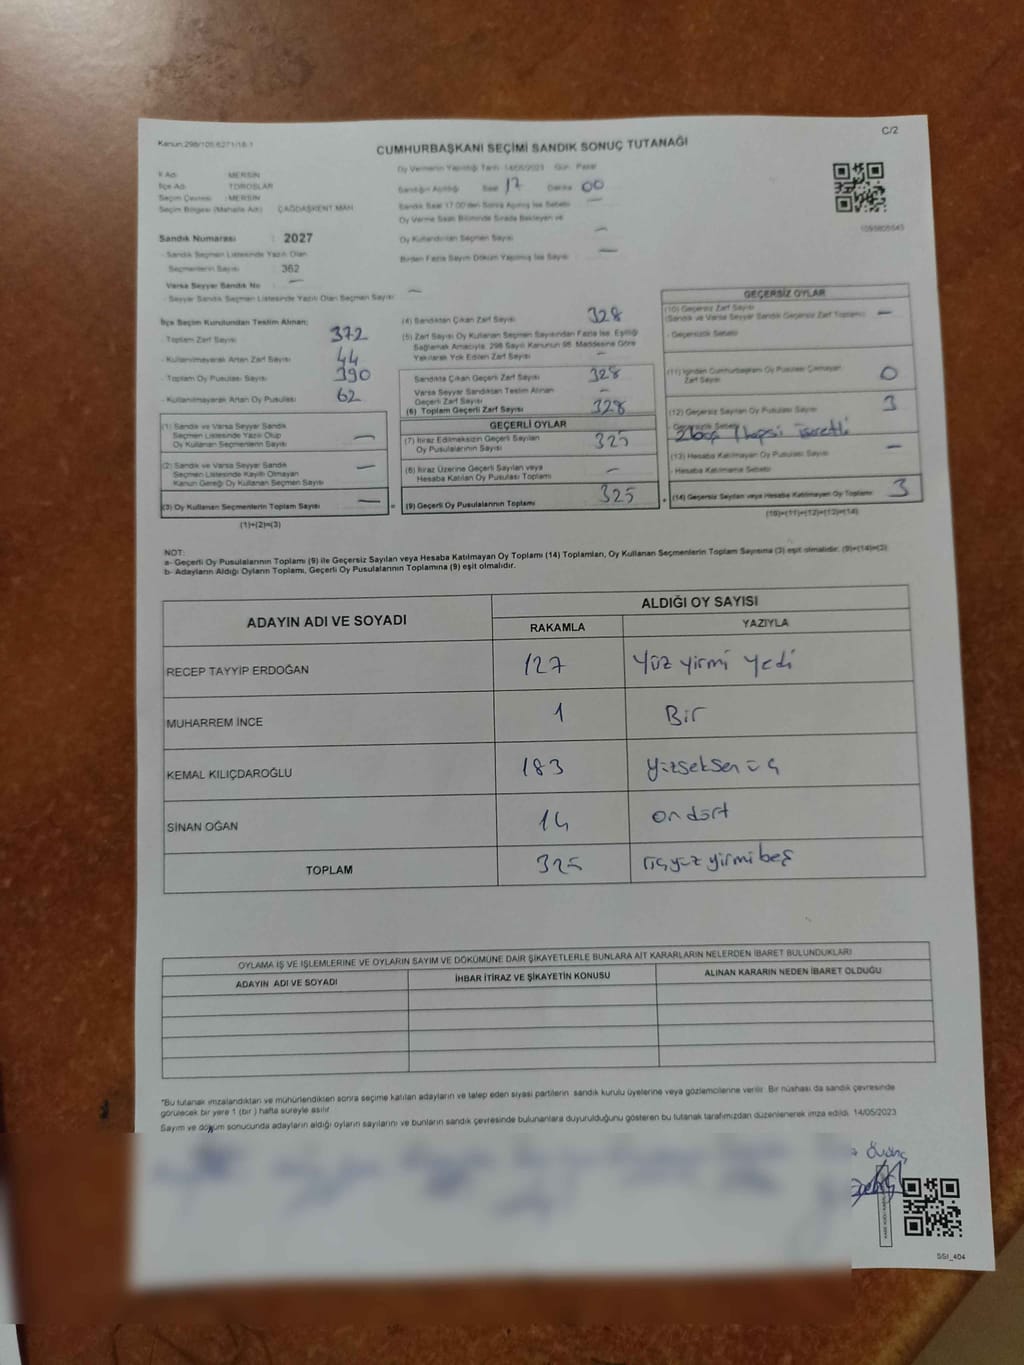 C/2
Kanun:298/105,6271/18-1
CUMHURBAŞKANI SEÇİMİ SANDIK SONUÇ TUTANAĞI
İl Adı : MERSİN
İlçe Adı : TOROSLAR
Seçim Çevresi : MERSİN
Seçim Bölgesi (Mahalle Adı) : ÇAĞDAŞKENT MAH.
Sandık Numarası : 2027
- Sandık Seçmen Listesinde Yazılı Olan
Seçmenlerin Sayısı : 362
Varsa Seyyar Sandık No : —
- Seyyar Sandık Seçmen Listesinde Yazılı Olan Seçmen Sayısı —
Oy Vermenin Yapıldığı Tarih: 14/05/2023 Gün: Pazar
Sandığın Açıldığı Saat 17 Dakika 00
Sandık Saat 17:00'den Sonra Açılmış İse Sebebi —
Oy Verme Saati Bitiminde Sırada Bekleyen ve
Oy Kullandırılan Seçmen Sayısı —
Birden Fazla Sayım Döküm Yapılmış İse Sayısı —
İlçe Seçim Kurulundan Teslim Alınan:
- Toplam Zarf Sayısı 372
- Kullanılmayarak Artan Zarf Sayısı 44
- Toplam Oy Pusulası Sayısı 390
- Kullanılmayarak Artan Oy Pusulası 62
(1) Sandık ve Varsa Seyyar Sandık
Seçmen Listesinde Yazılı Olup
Oy Kullanan Seçmenlerin Sayısı —
(2) Sandık ve Varsa Seyyar Sandık
Seçmen Listesinde Kayıtlı Olmayan
Kanun Gereği Oy Kullanan Seçmen Sayısı —
(3) Oy Kullanan Seçmenlerin Toplam Sayısı —
(1)+(2)=(3)
(4) Sandıktan Çıkan Zarf Sayısı 328
(5) Zarf Sayısı Oy Kullanan Seçmen Sayısından Fazla İse, Eşitliği
Sağlamak Amacıyla, 298 Sayılı Kanunun 98. Maddesine Göre
Yakılarak Yok Edilen Zarf Sayısı —
Sandıkta Çıkan Geçerli Zarf Sayısı 328
Varsa Seyyar Sandıktan Teslim Alınan
Geçerli Zarf Sayısı —
(6) Toplam Geçerli Zarf Sayısı 328
GEÇERLİ OYLAR
(7) İtiraz Edilmeksizin Geçerli Sayılan
Oy Pusulalarının Sayısı 325
(8) İtiraz Üzerine Geçerli Sayılan veya
Hesaba Katılan Oy Pusulası Toplamı —
= (9) Geçerli Oy Pusulalarının Toplamı 325 +
1093805543
GEÇERSİZ OYLAR
(10) Geçersiz Zarf Sayısı
(Sandık ve Varsa Seyyar Sandık Geçersiz Zarf Toplamı) —
- Geçersizlik Sebebi
(11) İçinden Cumhurbaşkanı Oy Pusulası Çıkmayan
Zarf Sayısı 0
(12) Geçersiz Sayılan Oy Pusulası Sayısı 3
- Geçersizlik Sebebi
2 boş 1 hepsi işaretli
(13) Hesaba Katılmayan Oy Pusulası Sayısı —
- Hesaba Katılmama Sebebi
(14) Geçersiz Sayılan veya Hesaba Katılmayan Oy Toplamı 3
(10)+(11)+(12)+(13)=(14)
NOT:
a- Geçerli Oy Pusulalarının Toplamı (9) ile Geçersiz Sayılan veya Hesaba Katılmayan Oy Toplamı (14) Toplamları, Oy Kullanan Seçmenlerin Toplam Sayısına (3) eşit olmalıdır. (9)+(14)=(3)
b- Adayların Aldığı Oyların Toplamı, Geçerli Oy Pusulalarının Toplamına (9) eşit olmalıdır.
ADAYIN ADI VE SOYADI
ALDIĞI OY SAYISI
RAKAMLA YAZIYLA
RECEP TAYYİP ERDOĞAN 127 Yüz yirmi yedi
MUHARREM İNCE 1 Bir
KEMAL KILIÇDAROĞLU 183 Yüzseksen üç
SİNAN OĞAN 14 on dört
TOPLAM 325 üçyüz yirmi beş
OYLAMA İŞ VE İŞLEMLERİNE VE OYLARIN SAYIM VE DÖKÜMÜNE DAİR ŞİKAYETLERLE BUNLARA AİT KARARLARIN NELERDEN İBARET BULUNDUKLARI
ADAYIN ADI VE SOYADI İHBAR İTİRAZ VE ŞİKAYETİN KONUSU ALINAN KARARIN NEDEN İBARET OLDUĞU
"Bu tutanak imzalandıktan ve mühürlendikten sonra seçime katılan adayların ve talep eden siyasi partilerin sandık kurulu üyelerine veya gözlemcilerine verilir. Bir nüshası da sandık çevresinde
görülecek bir yere 1 (bir) hafta süreyle asılır.
Sayım ve döküm sonucunda adayların aldığı oyların sayılarını ve bunların sandık çevresinde bulunanlara duyurulduğunu gösteren bu tutanak tarafımızdan düzenlenerek imza edildi. 14/05/2023
SSI_404